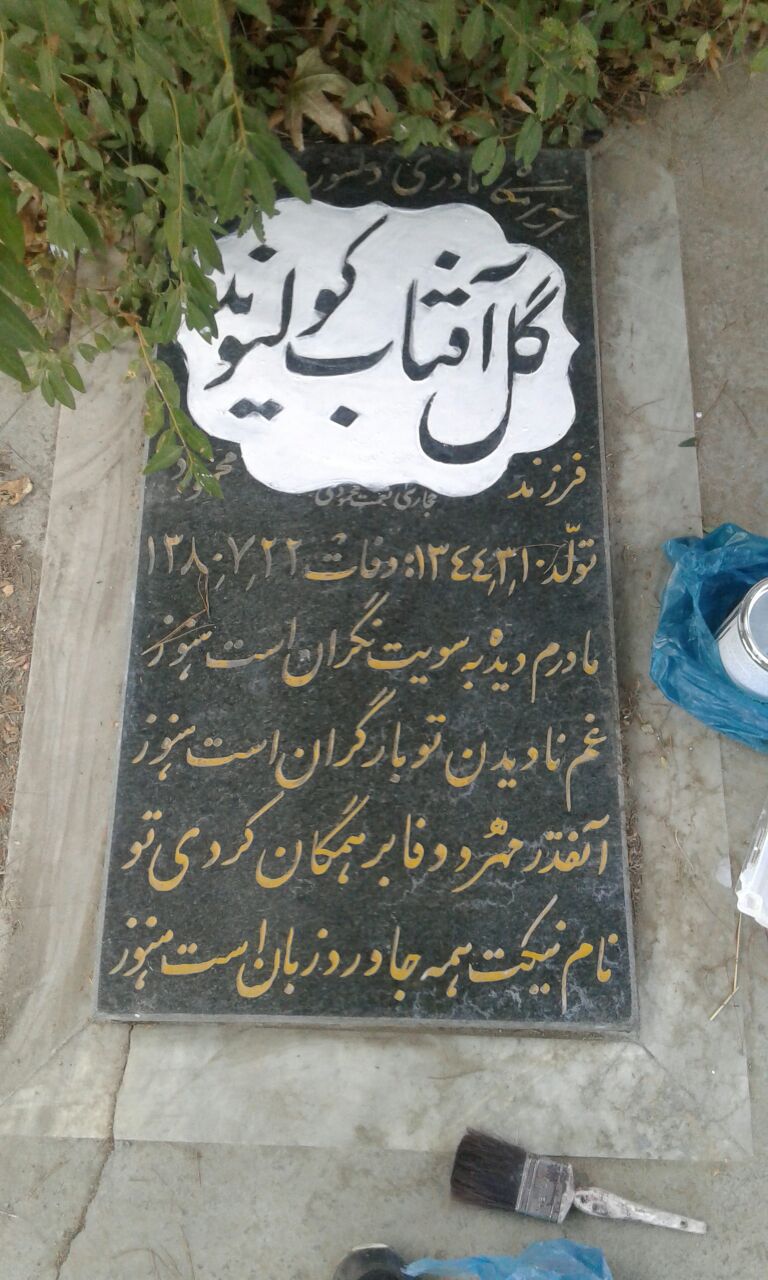 آرامگاه مادری دلسوز
گل آفتاب کولیوند
فرزند محمود
حجاری نعمت محمودی
تولّد:۱۳۴۴٫۳٫۱۰ وفات:۱۳۸۰٫۷٫۲۲
مادرم دیده به سویت نگران است هنوز
غم نادیدن تو بار گران است هنوز
آنقدر مهر و وفا بر همگان کردی تو
نام نیکت همه جا ورد زبان است هنوز